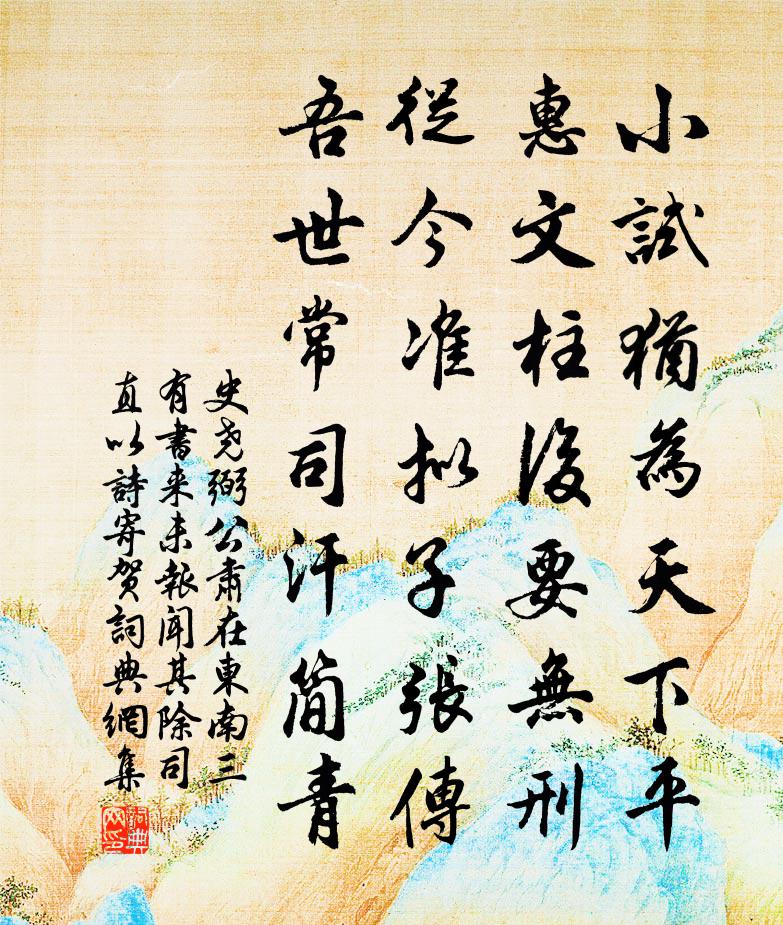 小試猶為天下平
惠文柱後要無刑
從今准擬子張傳
吾世常司汗簡青
史堯弼公肅在東南三
有書來未報聞其除司
直以詩寄賀詞典網集